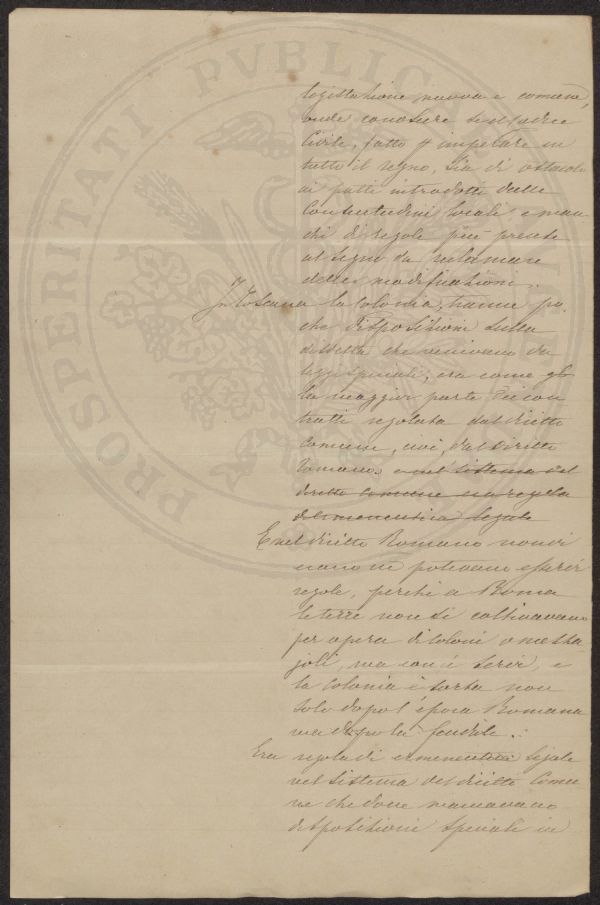 PROSPERITATI PVBLICAE
legislazione nuova e comune,
onde conoscere se il Codice
Civile, fatto p imperare in
tutto il regno, sia di ostacolo
ai patti introdotti dalle
Consuetudini locali e man
chi di regole più presto
al segno da reclamare
delle modificazioni.
In Toscana la Colonia, tranne po
che disposizioni sulla
disdetta che venivano da
leggi speciali, era come
la maggior parte dei con
tratti regolata dal diritto
Comune, cioè, dal Diritto
Romano. e nel sistema del
diritto comune una regola
di ermeneutica legale
E nel diritto Romano non vi
erano nè potevano esservi
regole, perchè a Roma
le terre non si coltivavano
per opera di coloni o mezza
joli, ma con i servi, e
la colonia è sorta non
solo dopo l'época Romana
ma dopo la feudale.
Era regola di ermeneutica legale
nel sistema del diritto Comu
ne che dove mancavano
disposizioni speciali in